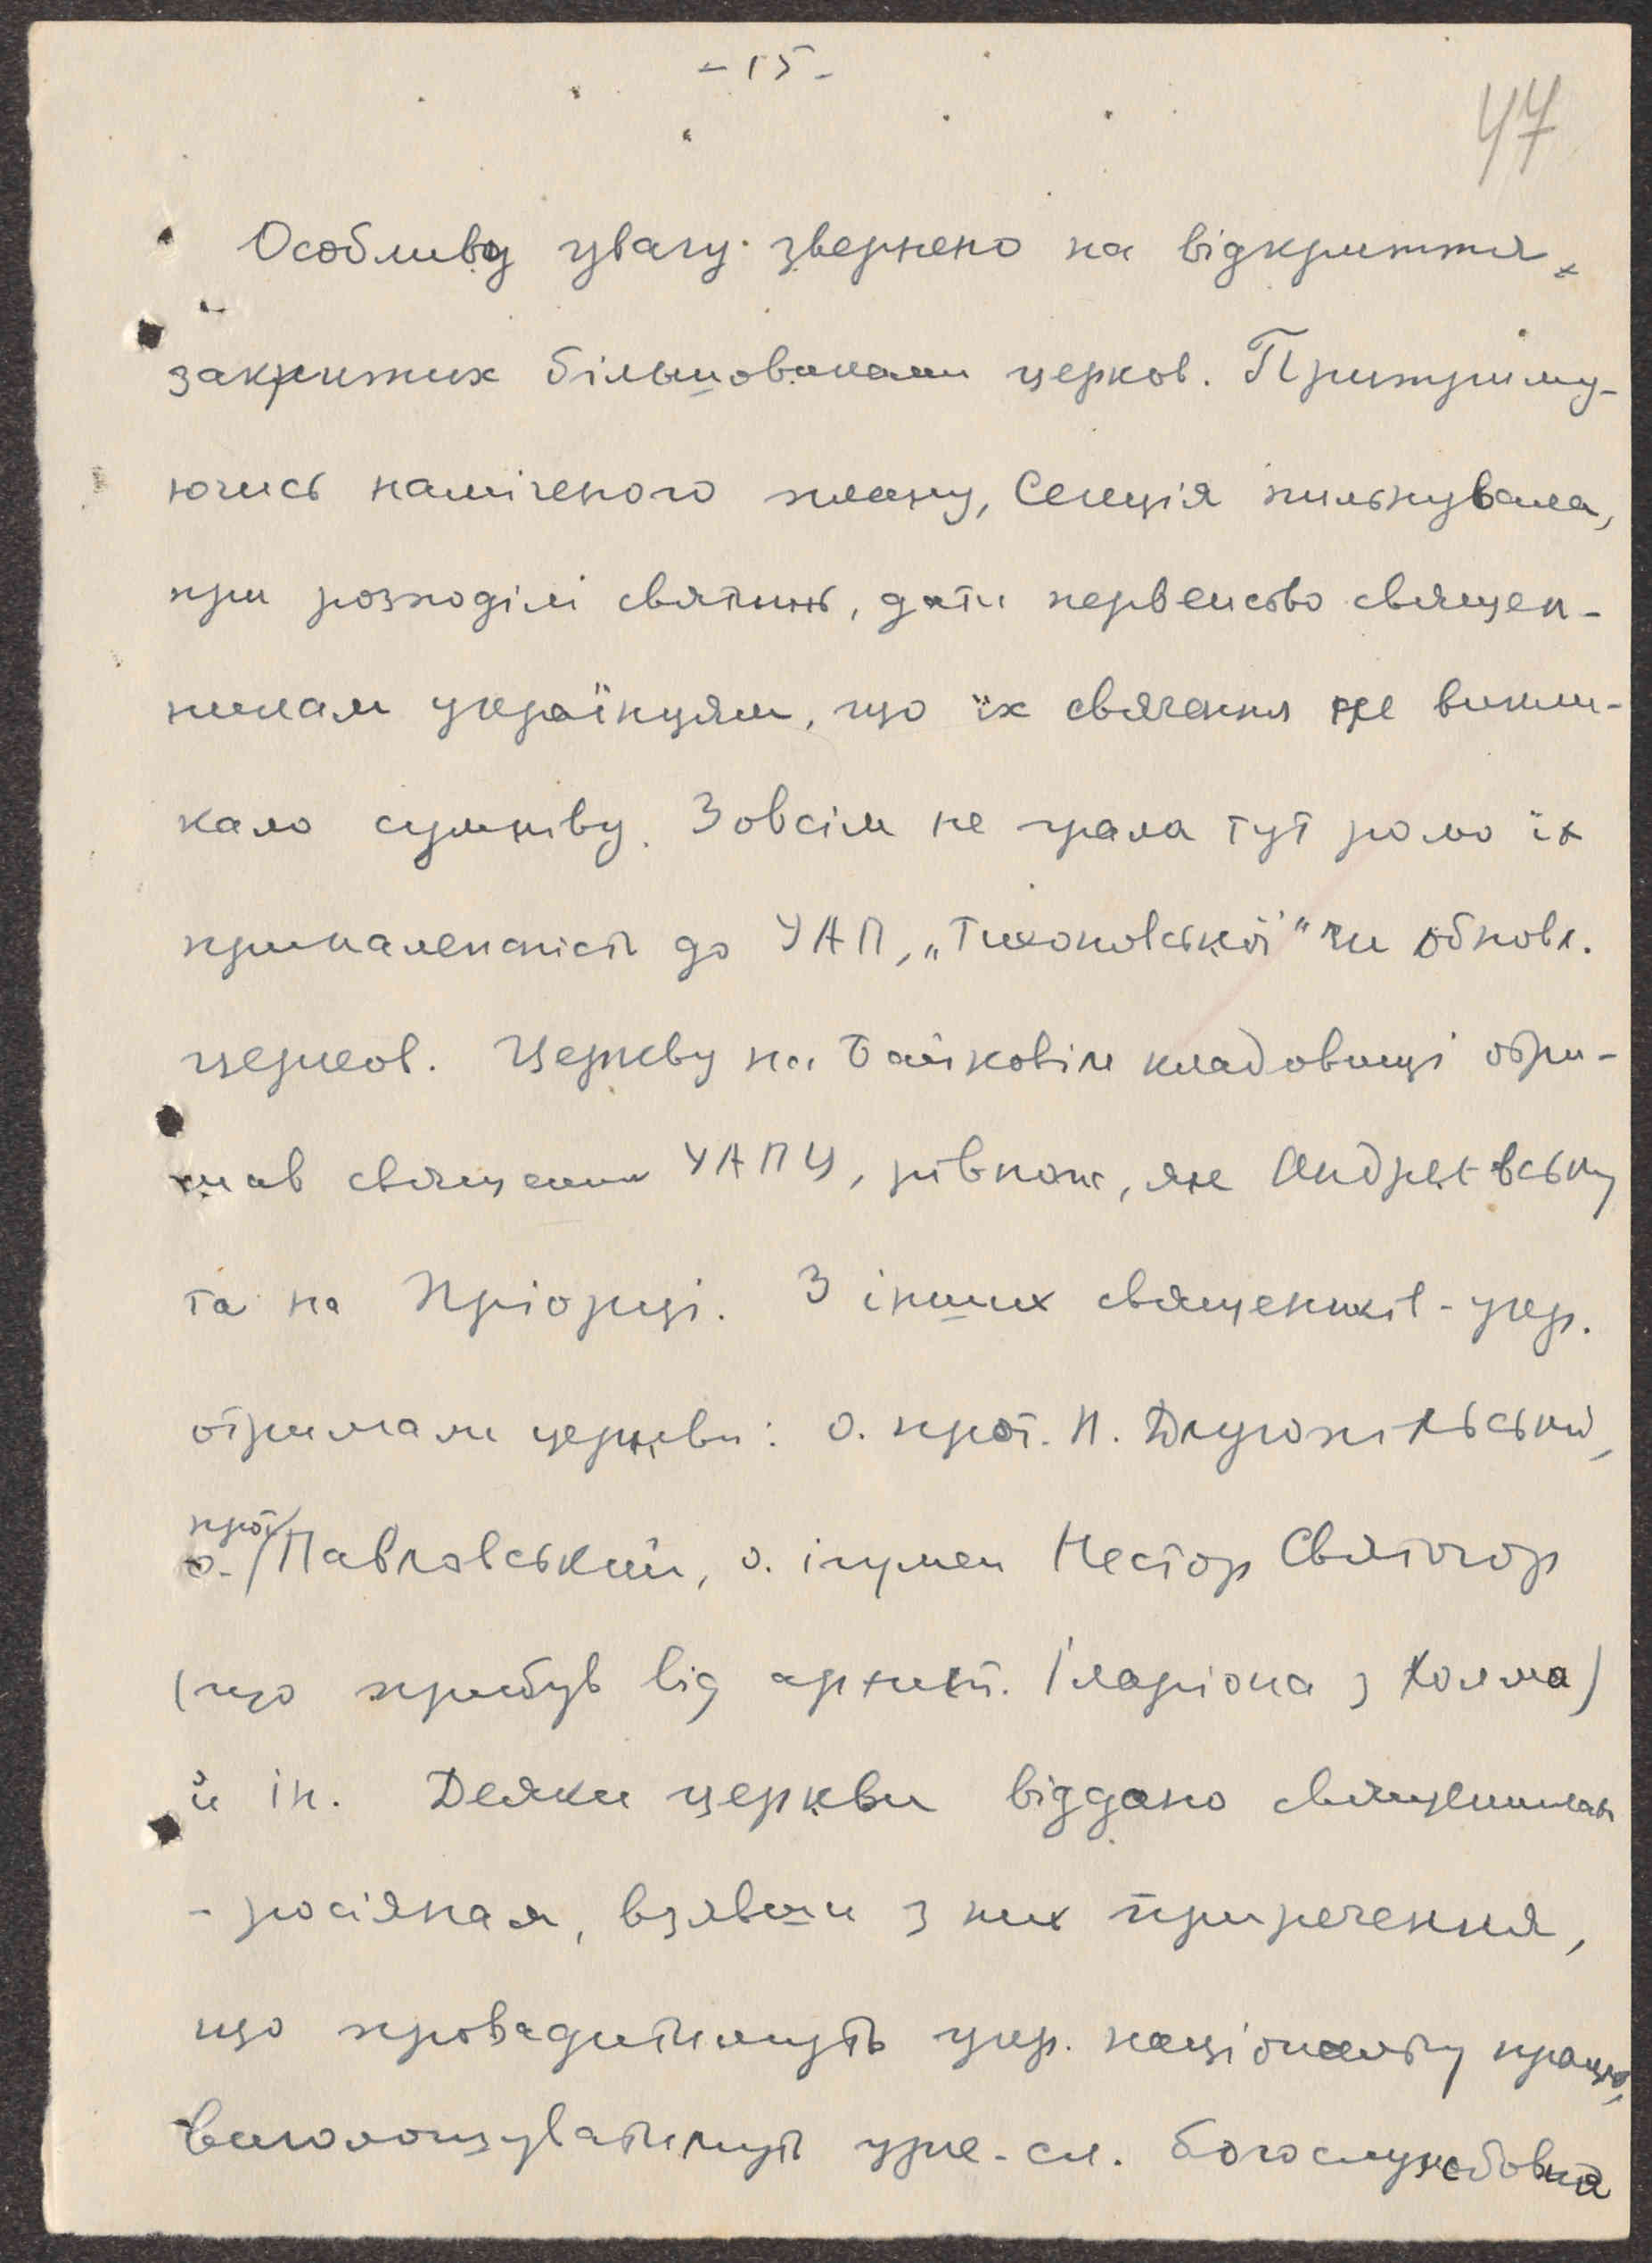 - 15 -
47
Особливу увагу звернено на відкриття
закритих більшовиками церков. Притриму-
ючись наміченого плану, Секція пильнувала,
при розподілі святинь, дати первенство священ-
никам українцям, що їх свячення не викли-
кало сумніву. Зовсім не грала тут ролю їх
приналежність до УАП, „Тихоновської" чи обновл.
церков. Церкву на Байковім кладовищі отри-
мав священик УАПЦ, рівнож, як Андреївську
та на Пріорці. З інших священиків-укр.
отримали церкви: о. прот. П. Длугопільський,
прот.
о. Павловський, о. ігумен Нестор Святогор
(що прибув від архиєп. Іларіона з Холма)
й ін. Деяки церкви віддано священикам
- росіянам, взявши з них приречення,
що провадитимуть укр. національну працю,
виголошуватимуть укр. богослужбовна